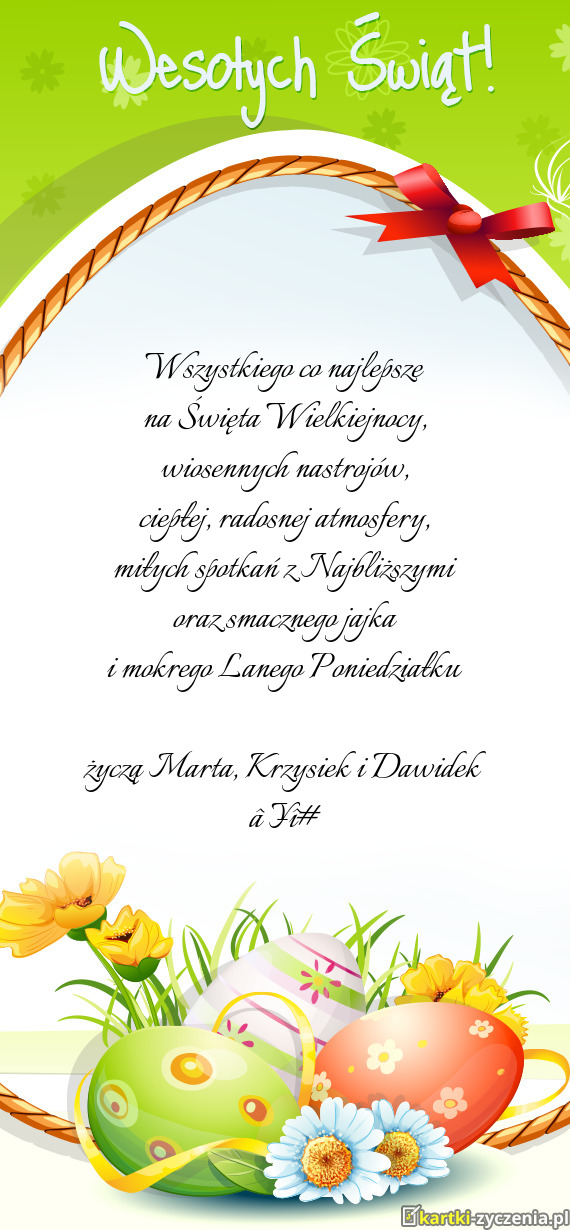 Wesołych Świąt!
Wszystkiego co najlepsze
na Święta Wielkiejnocy,
wiosennych nastrojów,
ciepłej, radosnej atmosfery,
miłych spotkań z Najbliższymi
oraz smacznego jajka
i mokrego Lanego Poniedziałku
życzą Marta, Krzysiek i Dawidek
kartki-zyczenia.pl